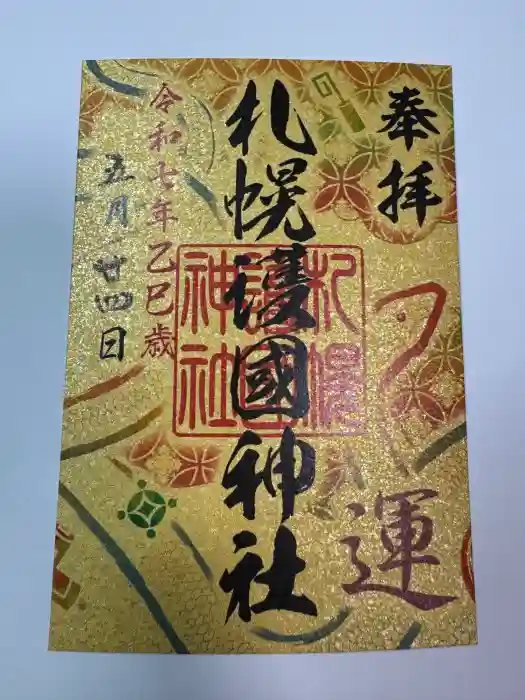 奉拝
運
札幌護國神社
札幌護國神社
令和七年乙巳歳
五月廿四日